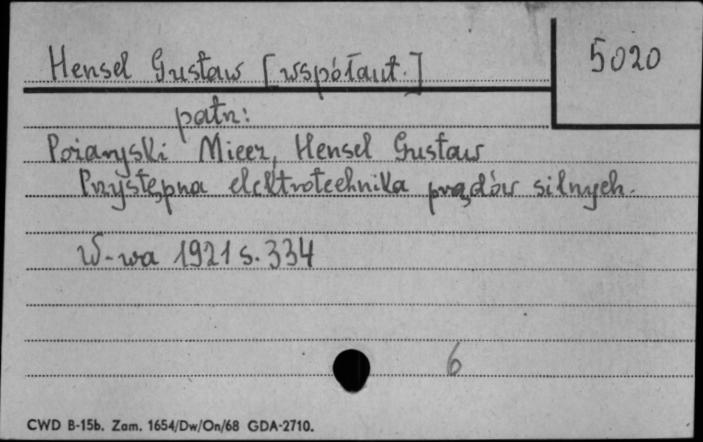 Hensel Gustaw [współaut.]
5020
patrz:
Pożaryski Miecz, Hensel Gustaw
Przystępna elektrotechnika prądów silnych.
W-wa 1921 s. 334
6
CWD B-15b. Zam. 1654/Dw/On/68 GDA-2710.